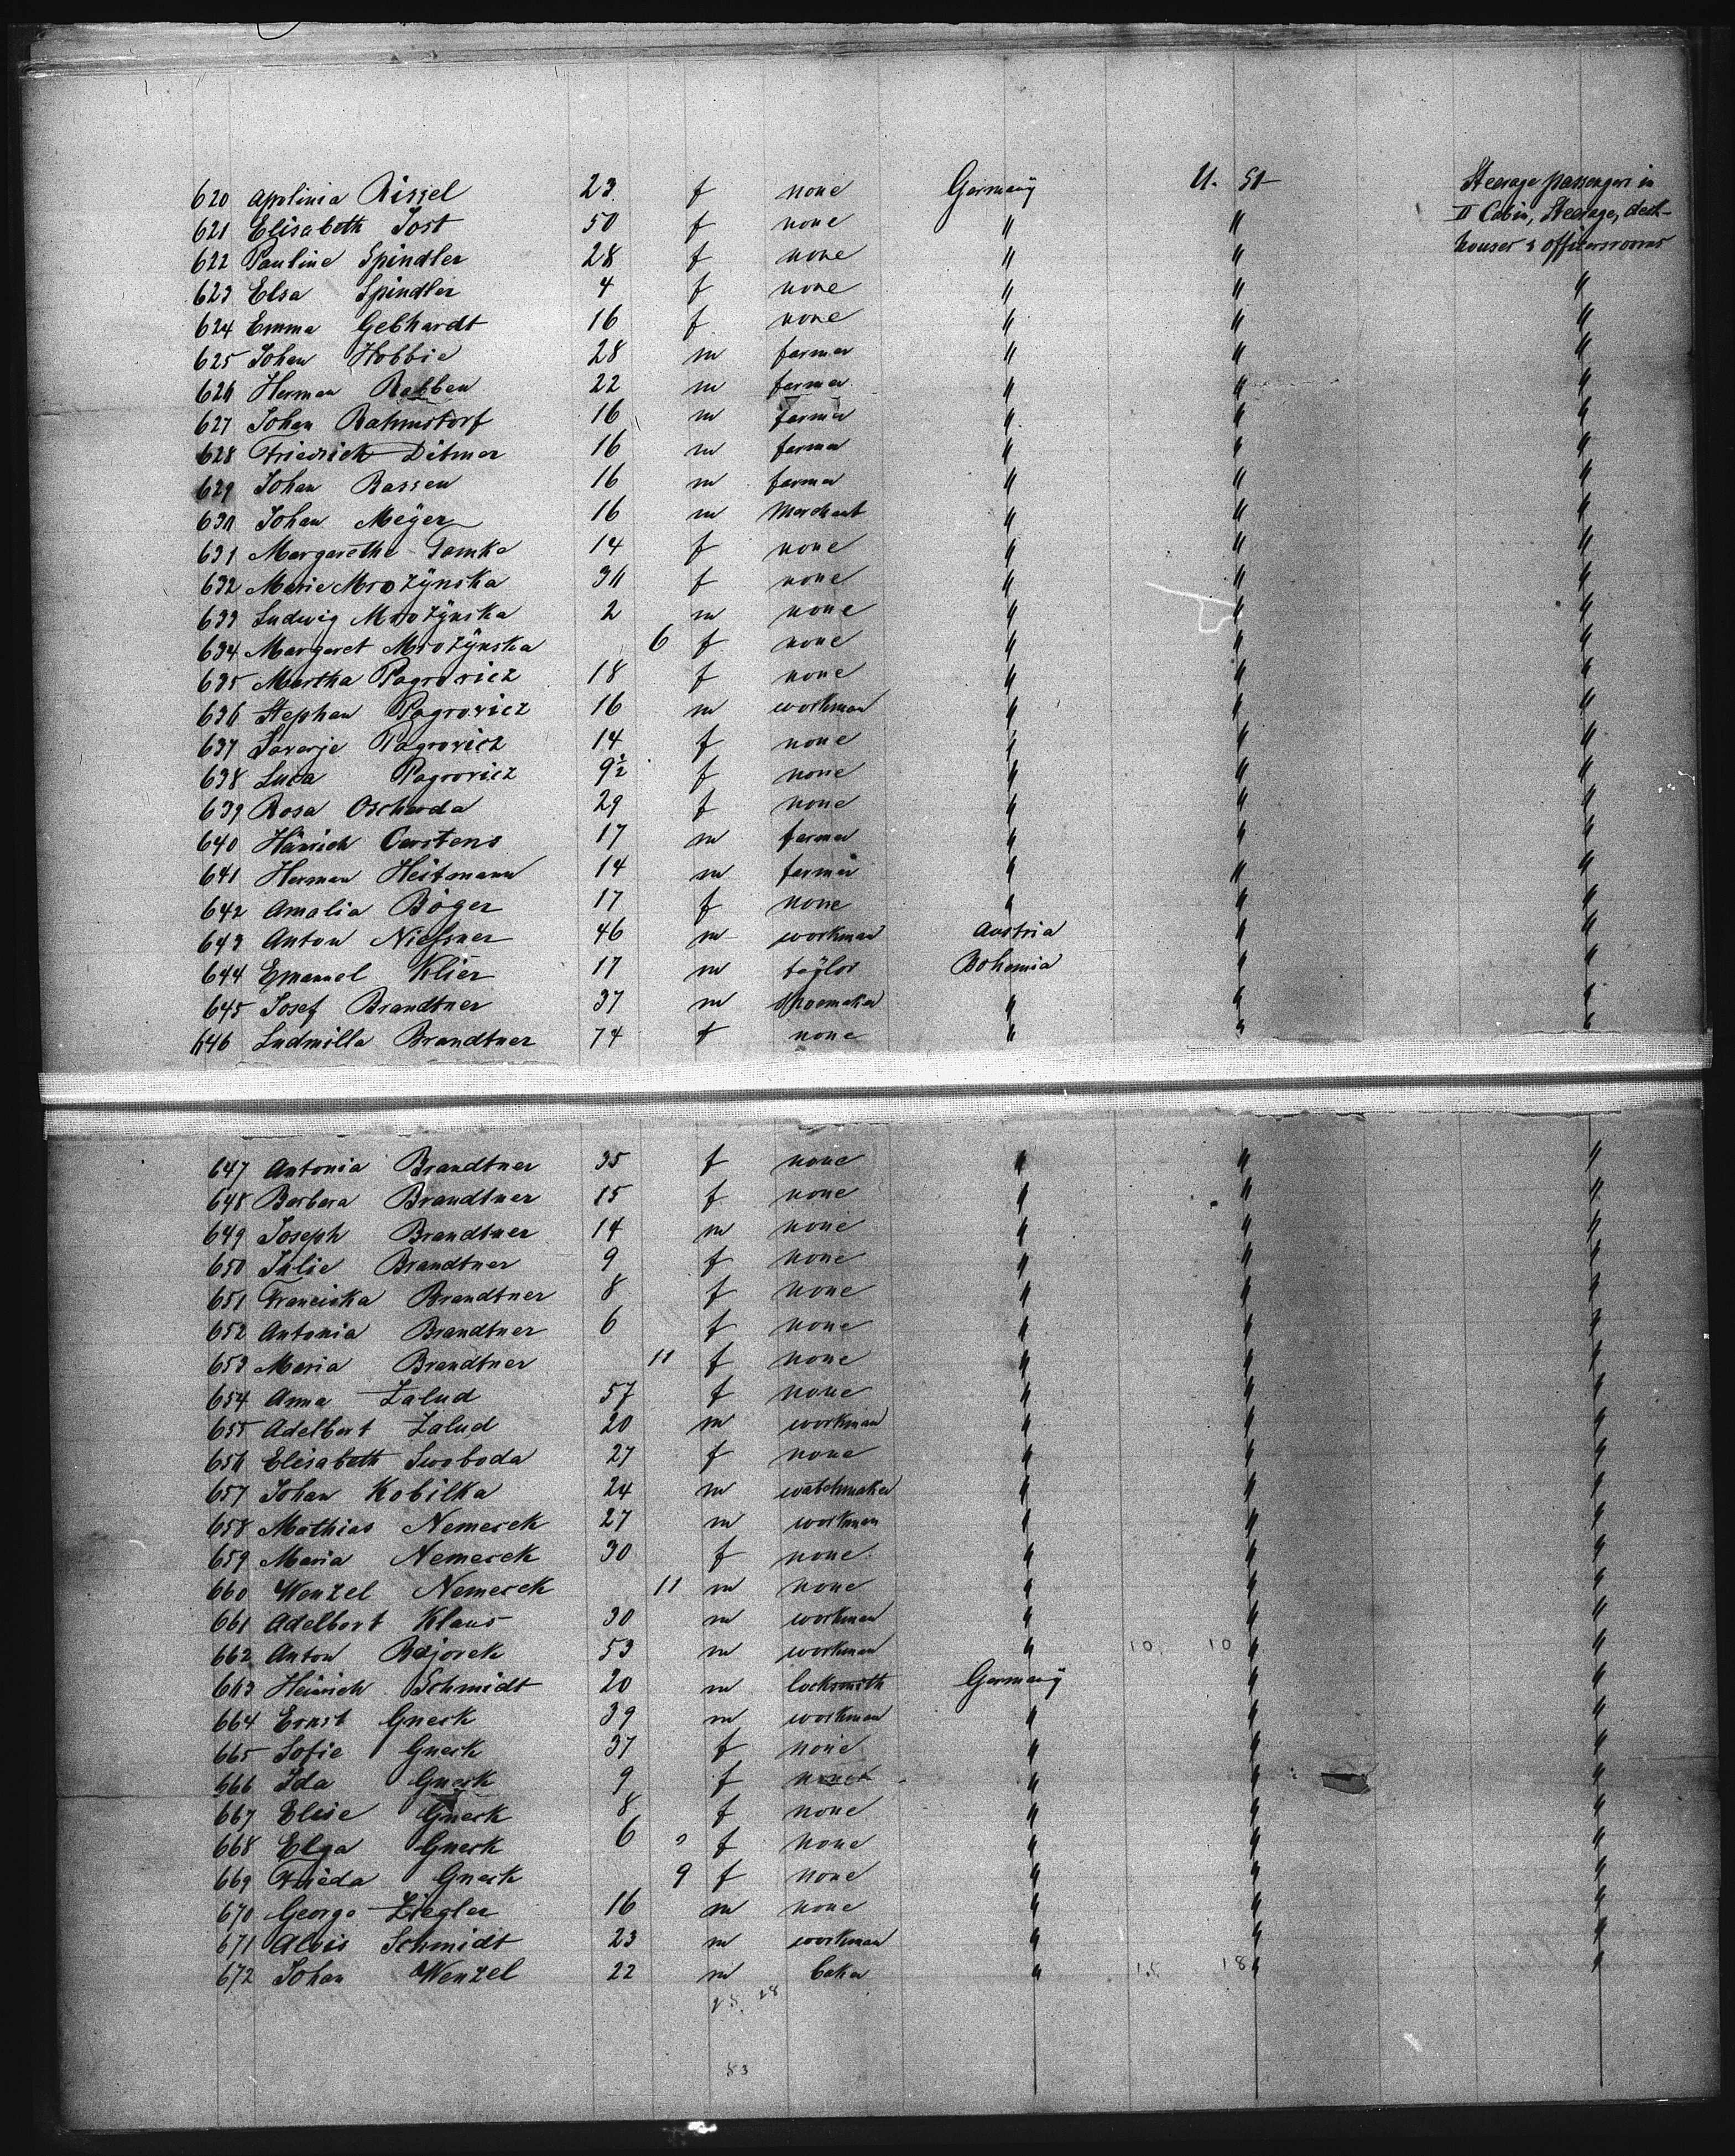 620 Apolinia Rissel 23 f none Germany U. St Steerage passengers in
621 Elisabeth Jost 50 f none " " II Cabin, Steerage, deck-
622 Pauline Spindler 28 f none " " houses & officersrooms
623 Elsa Spindler 4 f none " " "
624 Emma Gebhardt 16 f none " " "
625 Johan Hobbie 28 m farmer " " "
626 Herman Rebben 22 m farmer " " "
627 Johan Rahmstorf 16 m farmer " " "
628 Friedrich Ditmer 16 m farmer " " "
629 Johan Bassen 16 m farmer " " "
630 Johan Meÿer 16 m Merchant " " "
631 Margarethe Tamke 14 f none " " "
632 Marie Mrozÿnska 30 f none " " "
633 Ludwig Mrozÿnska 2 m none " " "
634 Margaret Mrozÿnska 6 f none " " "
635 Martha Pagrovicz 18 f none " " "
636 Stephan Pagrovicz 16 m workman " " "
637 Pagrovicz 14 f none " " "
638 Luca Pagrovicz 9½ f none " " "
639 Rosa Oscharda 29 f none " " "
640 Hinrich Carstens 17 m farmer " " "
641 Herman Heitmann 14 m farmer " " "
642 Amalia Böger 17 f none " " "
643 Anton Niessner 46 m workman Austria " "
644 Emanuel Klier 17 m taÿlor Bohemia " "
645 Josef Brandtner 37 m shoemaker " " "
646 Ludmilla Brandtner 74 f none " " "
647 Antonia Brandtner 35 f none " " "
648 Barbara Brandtner 15 f none " " "
649 Joseph Brandtner 14 m none " " "
650 Julie Brandtner 9 f none " " "
651 Franciska Brandtner 8 f none " " "
652 Antonia Brandtner 6 f none " " "
653 Maria Brandtner 11 f none " " "
654 Anna Zalud 57 f none " " "
655 Adelbert Zalud 20 m workman " " "
656 Elisabeth Swoboda 27 f none " " "
657 Johan Kobilka 24 m watchmaker " " "
658 Mathias Nemecek 27 m workman " " "
659 Maria Nemecek 30 f none " " "
660 Wenzel Nemecek 11 m none " " "
661 Adelbert Klaus 30 m workman " " "
662 Anton Bajorek 53 m workman " 10 10 " "
663 Heinrich Schmidt 20 m locksmith Germanÿ " "
664 Ernst Gneck 39 m workman " " "
665 Sofie Gneck 37 f none " " "
666 Ida Gneck 9 f none " " "
667 Elise Gneck 8 f none " " "
668 Elga Gneck 6 f none " " "
669 Frieda Gneck 9 f none " " "
670 George Ziegler 16 m none " " "
671 Alois Schmidt 23 m workman " " "
672 Johan Wenzel 22 m baker " 18 18 " "
28 28
83